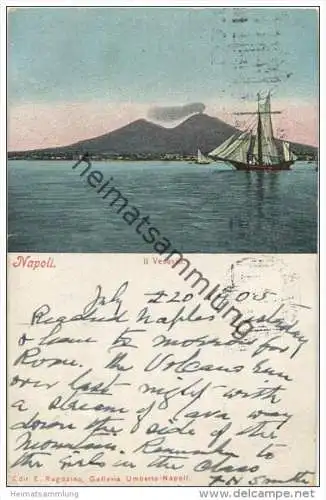 heimatsammlung.de
Napoli.
Il Vesuvio
July 20
Reached Naples yesterday
& leave to morrow for
Rome. The Volcano
over last night with
a stream of lava way
down the side of the
Mountain. Remember
to the girls in the Class
Smith
Edit. E. Ragozino, Galleria Umberto-Napoli.
www.heimatsammlung.de